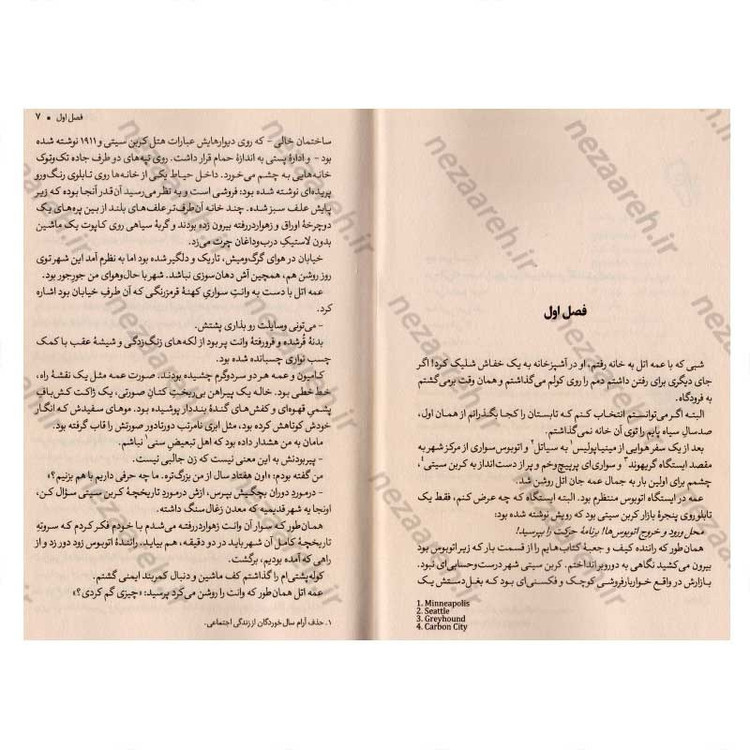 فصل اول
شبی که با عمه اتل به خانه رفتم، او در آشپزخانه به یک خفاش شلیک کرد! اگر
جای دیگری برای رفتن داشتم دمم را روی کولم می‌گذاشتم و همان وقت برمی‌گشتم
به فرودگاه.
البته اگر می‌توانستم انتخاب کنم که تابستان را کجا بگذرانم از همان اول،
صدسال سیاه پایم را توی آن خانه نمی‌گذاشتم.
بعد از یک سفر هوایی از مینیاپولیس۱ به سیاتل۲ و اتوبوس‌سواری از مرکز شهر به
مقصد ایستگاه گریهوند۳ و سواری‌ای پرپیچ‌وخم و پر از دست‌انداز به کربن سیتی۴،
چشمم برای اولین بار به جمال عمه جان اتل روشن شد.
عمه در ایستگاه اتوبوس منتظرم بود. البته ایستگاه که چه عرض کنم، فقط یک
تابلو روی پنجرهٔ بازار کربن سیتی بود که رویش نوشته شده بود:
محل ورود و خروج اتوبوس‌ها! برنامهٔ حرکت را بپرسید!
همان‌طور که راننده کیف و جعبهٔ کتاب‌هایم را از قسمت بار که زیر اتوبوس بود
بیرون می‌کشید نگاهی به دوروبر انداختم. کربن سیتی شهر درست‌وحسابی‌ای نبود.
بازارش در واقع خواربارفروشی کوچک و فکسنی‌ای بود که بغل‌دستش یک
1. Minneapolis
2. Seattle
3. Greyhound
4. Carbon City
فصل اول ● ۷
ساختمان خالی - که روی دیوارهایش عبارات هتل کربن سیتی و ۱۹۱۱ نوشته شده
بود - و ادارهٔ پستی به اندازهٔ حمام قرار داشت. روی تپه‌های دو طرف جاده تک‌وتوک
خانه‌هایی به چشم می‌خورد. داخل حیاط یکی از خانه‌ها روی تابلوی رنگ‌ورو
پریده‌ای نوشته شده بود: فروشی است و به نظر می‌رسید آن‌قدر آنجا بوده که زیر
پایش علف سبز شده. چند خانه آن‌طرف‌تر علف‌های بلند از بین پره‌های یک
دوچرخهٔ اوراق و زهوار دررفته بیرون زده بودند و گربهٔ سیاهی روی کاپوت یک ماشین
بدون لاستیکِ درب‌وداغان چرت می‌زد.
خیابان در هوای گرگ‌ومیش، تاریک و دلگیر شده بود اما به نظرم آمد این شهر توی
روز روشن هم، همچین آش دهان‌سوزی نباشد. شهر با حال‌وهوای من جورِجور بود.
عمه اتل با دست به وانت سواری کهنهٔ قرمزرنگی که آن طرف خیابان بود اشاره
کرد.
- می‌تونی وسایلت رو بذاری پشتش.
بدنهٔ قُرشده و فرورفتهٔ وانت پر بود از لکه‌های زنگ‌زدگی و شیشهٔ عقب با کمک
چسب نواری چسبانده شده بود.
کامیون و عمه هر دو سردوگرم چشیده بودند. صورت عمه مثل یک نقشهٔ راه،
خط‌خطی بود. خاله یک پیراهن بی‌ریخت کتان صورتی، یک ژاکت کش‌باف
پشمی قهوه‌ای و کفش‌های گندهٔ بنددار پوشیده بود. موهای سفیدش که انگار
خودش کوتاهش کرده بود، مثل ابری نامرتب دورتادور صورتش را قاب گرفته بود.
مامان به من هشدار داده بود که اهل تبعیض سنی۱ نباشم.
- پیربودنش به این معنی نیست که زن جالبی نیست.
من گفته بودم: «اون هفتاد سال از من بزرگ‌تره. ما چه حرفی داریم با هم بزنیم؟»
- درمورد دوران بچگیش بپرس، ازش درمورد تاریخچهٔ کربن سیتی سؤال کن،
اونجا یه شهر قدیمیه که معدن زغال‌سنگ داشته.
همان‌طور که سوار آن وانت زهوار دررفته می‌شدم با خودم فکر کردم که سروتهِ
تاریخچهٔ کامل آن شهر باید در دو دقیقه، هم بیاید. رانندهٔ اتوبوس زود دور زد و از
راهی که آمده بودیم، برگشت.
کوله‌پشتی‌ام را گذاشتم کف ماشین و دنبال کمربند ایمنی گشتم.
عمه اتل همان‌طور که وانت را روشن می‌کرد پرسید: «چیزی گم کردی؟»
۱. حذف آرام سال‌خوردگان از زندگی اجتماعی.
nezaareh.ir